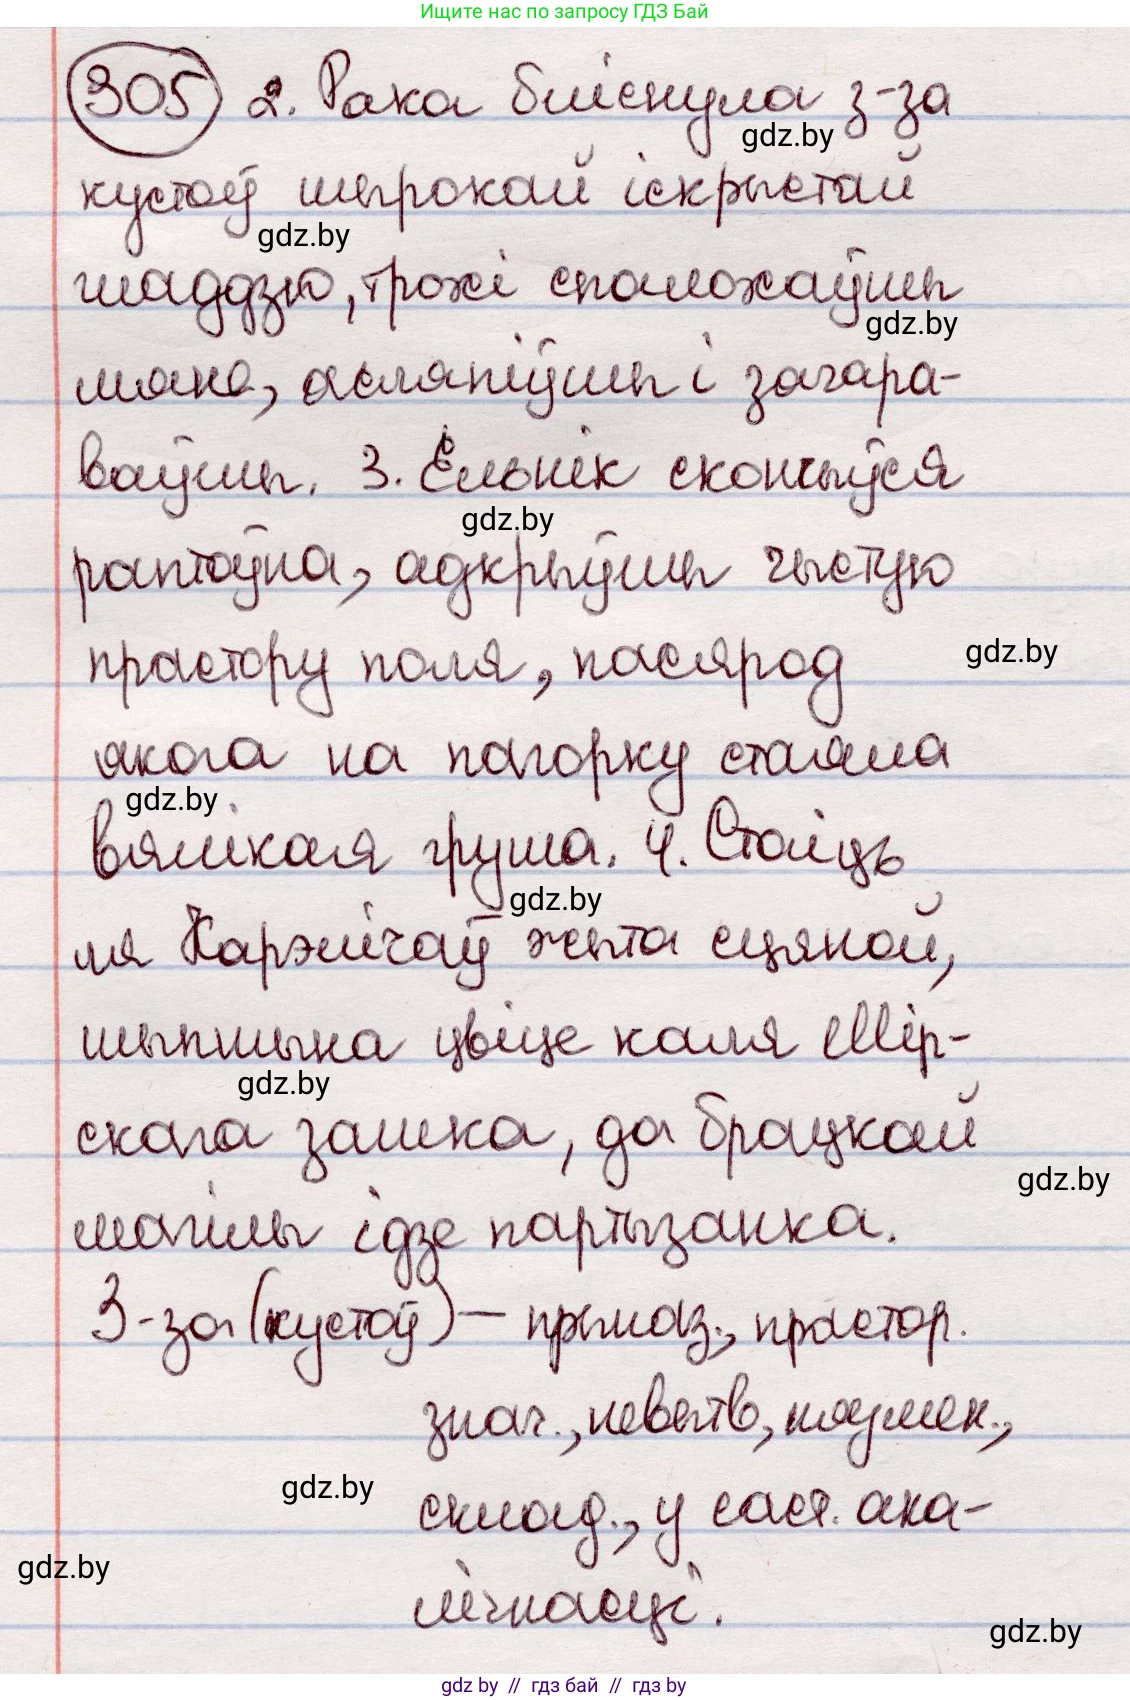 Ищите нас по запросу ГДЗ Бай
305 2. Рака бліснула з-за
gdz.by
кустоў шырокай іскрыстай
gdz.by
гладдзю, трохі спалохаўшы
gdz.by
мяне, асляпіўшы і зачара-
ваўшы. 3. Ельнік скончыўся
gdz.by
раптоўна, адкрыўшы чыстую
прастору поля, пасярод
gdz.by
якога на пагорку стаяла
gdz.by
вялікая груша. 4. Стаіць
gdz.by
ля Карэлічаў жыта сцяной,
шыпшына цвіце каля Мір-
gdz.by
скага замка, да брацкай
gdz.by
магілы ідзе партызанка.
З-за (кустоў) — прыназ., прастор.
знач., невытв., няўмен.,
gdz.by
склад., у саст. ака-
gdz.by
лічнасці.
gdz.by
gdz.by // гдз бай // gdz by